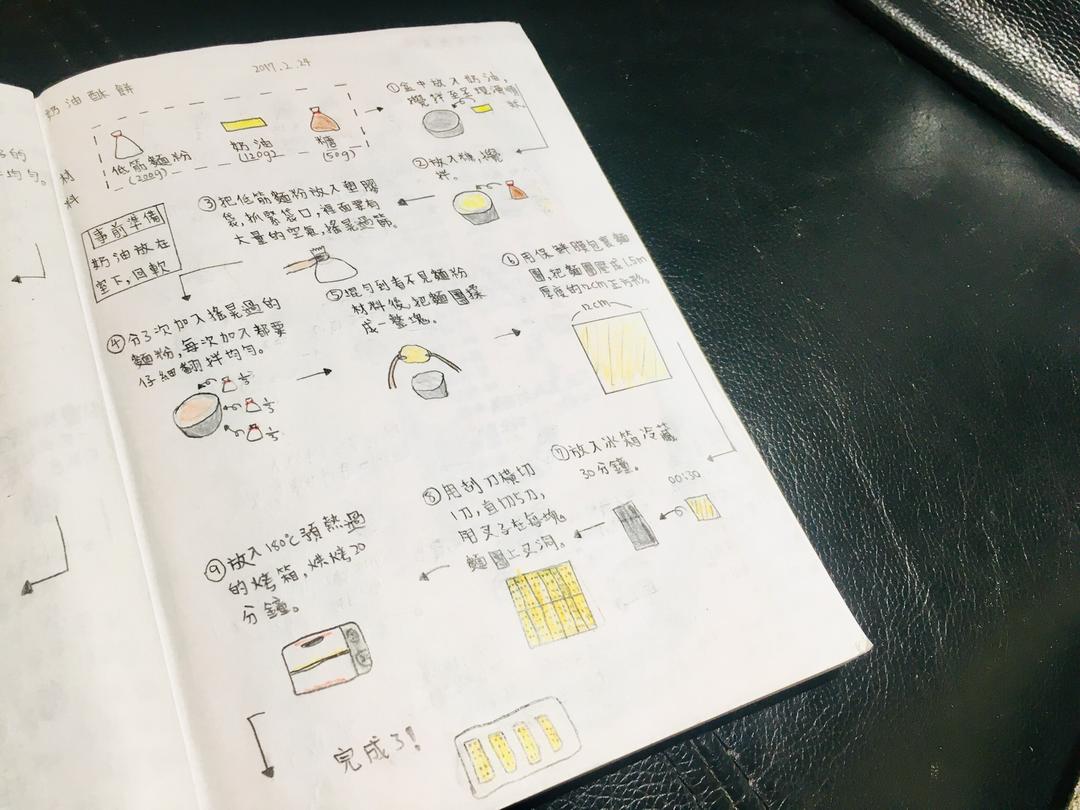 2017.2.24
奶油酥餅
材料
低筋麵粉
(200g)
奶油
(120g)
糖
(50g)
事前準備
奶油放在
室下,回軟
①盒中放入奶油,
攪拌至呈現滑順
狀。
②放入糖,攪
拌。
③把低筋麵粉放入塑膠
袋,抓緊袋口,裡面要有
大量的空氣,搖晃過篩。
④分3次加入搖晃過的
麵粉,每次加入都要
仔細翻拌均勻。
1/3
1/3
1/3
⑤混勻到看不見麵粉
材料後,把麵團揉
成一整塊。
⑥用保鮮膜包裹麵
團,把麵團壓成1.5m
厚度的12cm正方形。
12cm
⑦放入冰箱冷藏
30分鐘。
00:30
⑧用刮刀橫切
1刀,直切5刀,
用叉子在每塊
麵團上叉洞。
⑨放入150℃預熱過
的烤箱,烘烤20
分鐘。
完成了!
的
均勻。